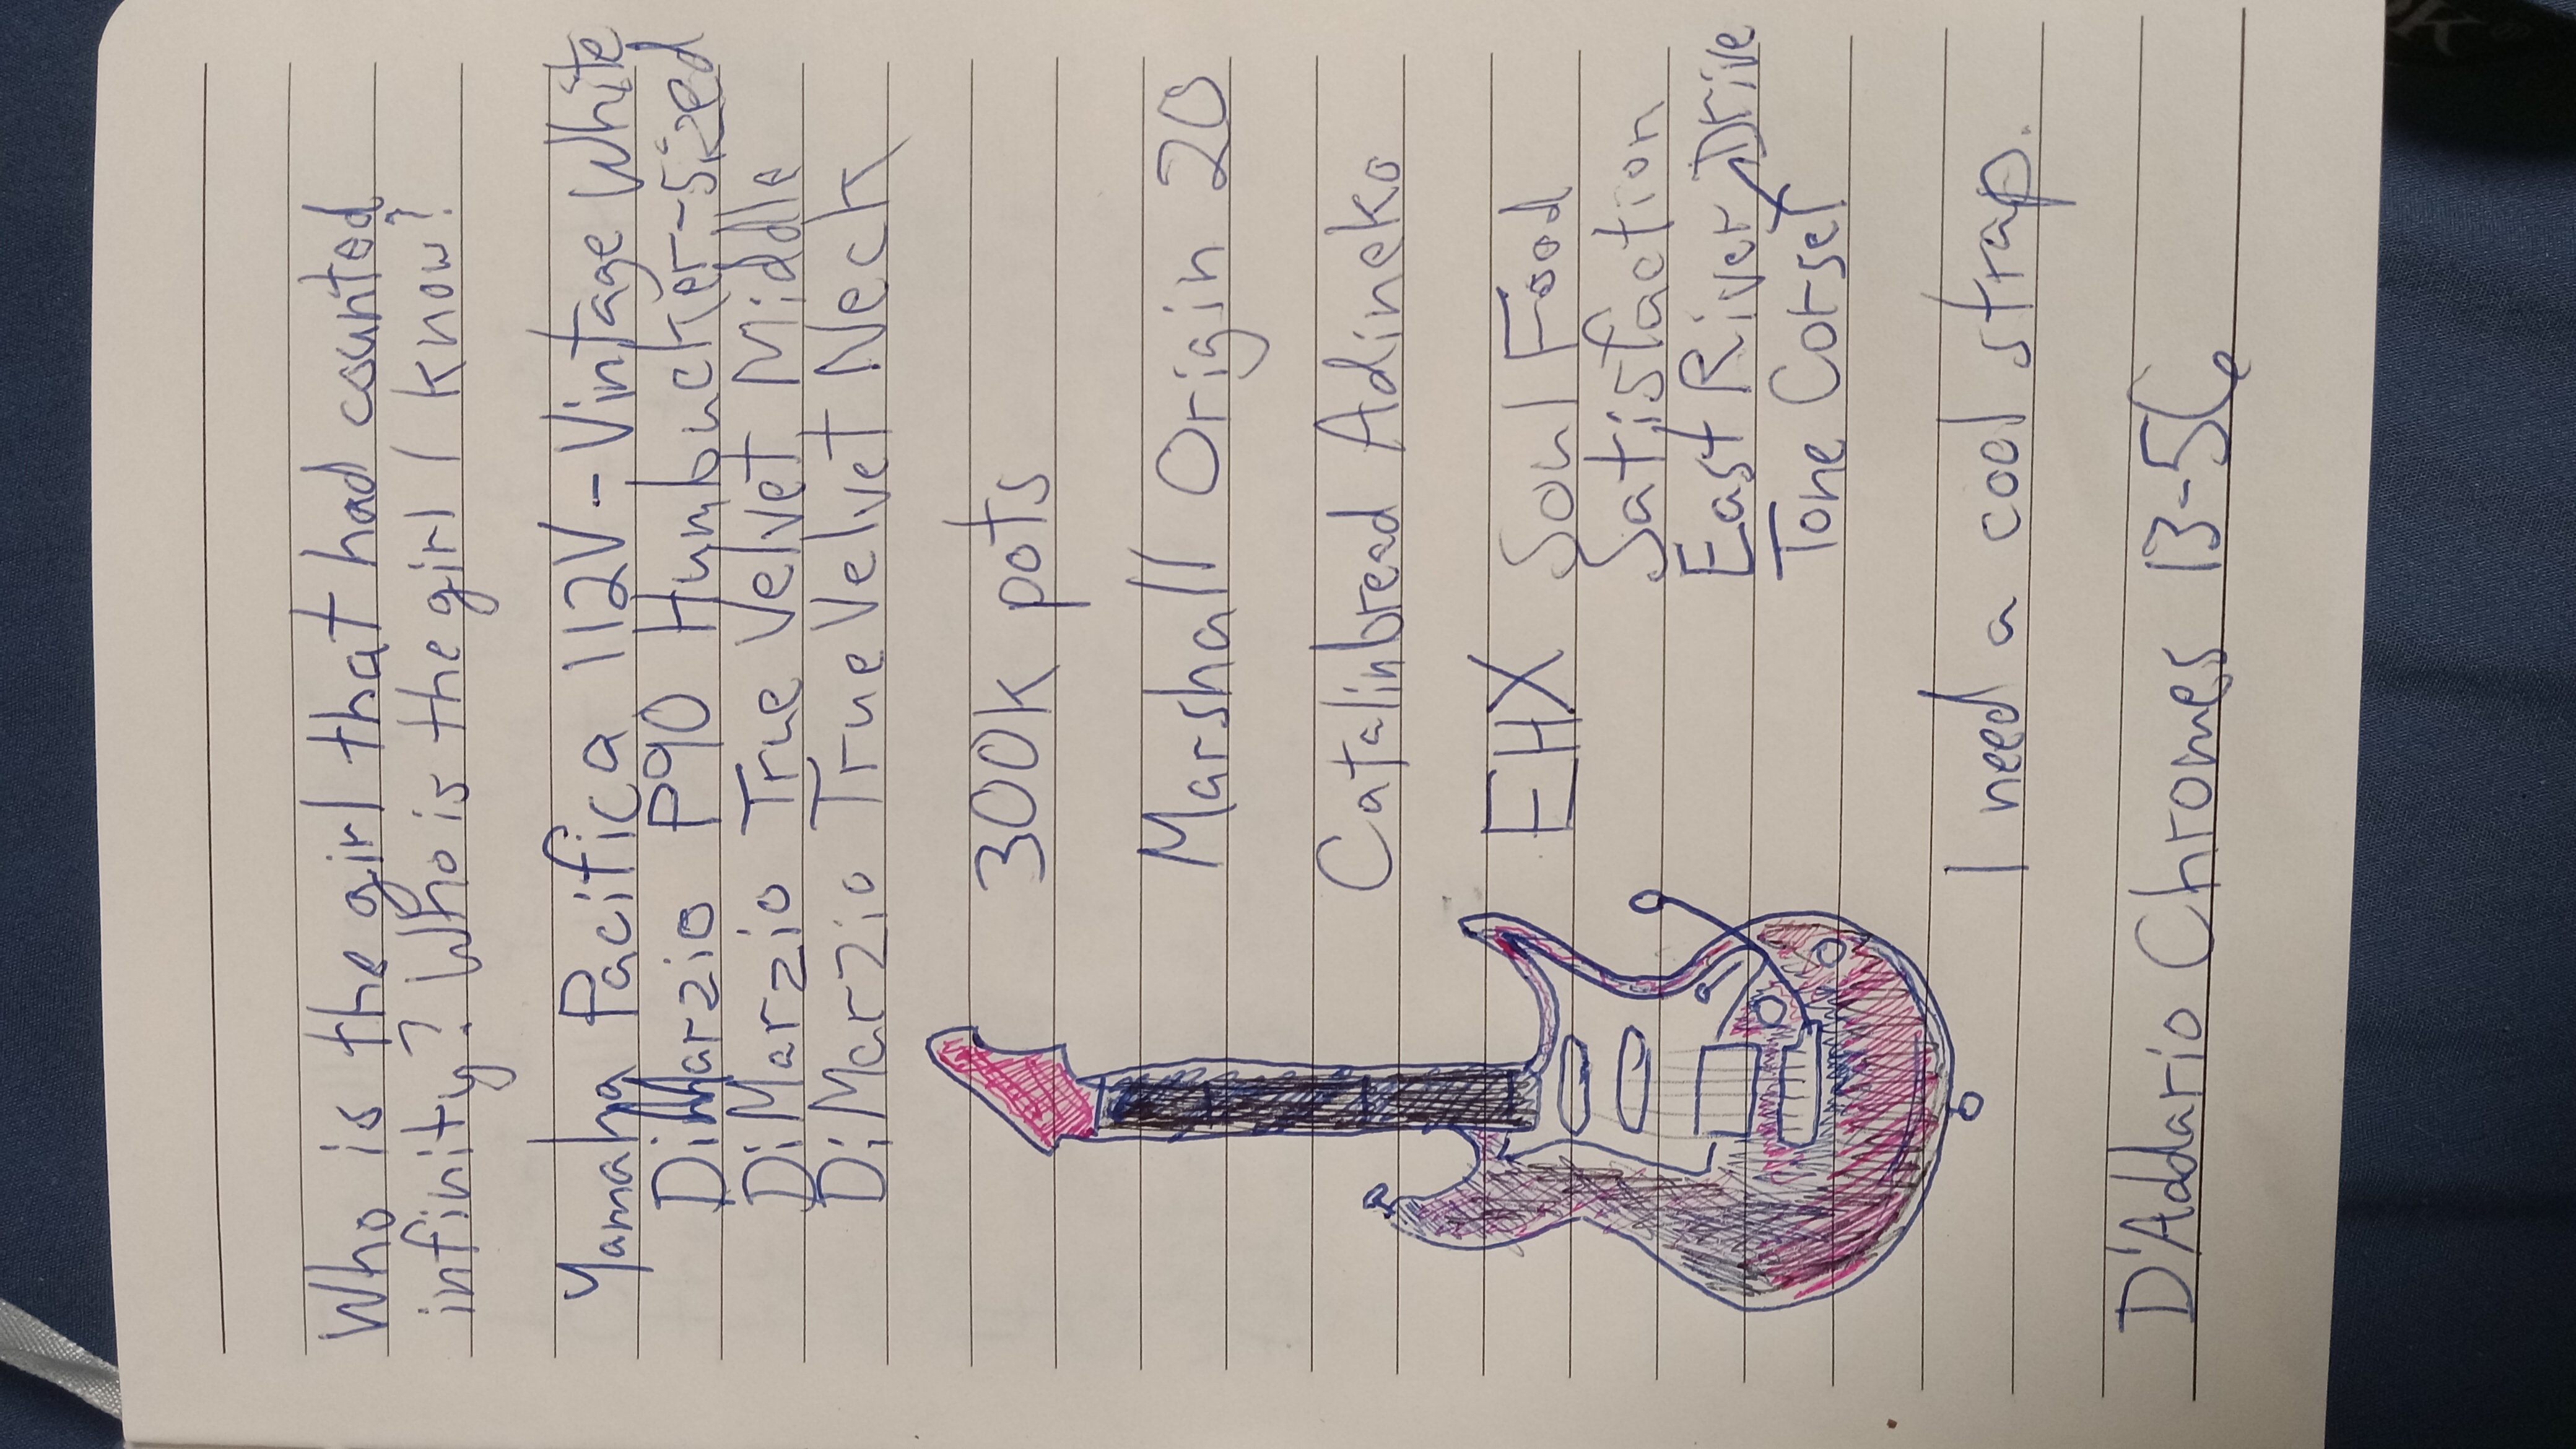 Who is the girl that had counted
infinity? Who is the girl I know?
Yamaha Pacifica 112V - Vintage White
DiMarzio P90 Humbucker-sized
DiMarzio True Velvet Middle
DiMarzio True Velvet Neck
300K pots
Marshall Origin 20
Catalinbread Adineko
EHX Soul Food
Satisfaction
East River Drive
Tone Corset
I need a cool strap.
D'Addario Chromes 13-56